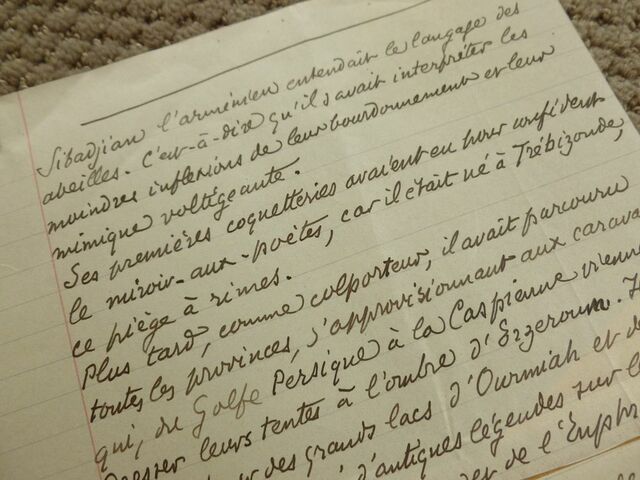 Sibadjian l'arménien entendait le langage des
abeilles. C'est-à-dire qu'il savait interpréter les
moindres inflexions de leur bourdonnement et leur
mimique voltigeante.
Ses premières coquetteries avaient eu pour confident
le miroir-aux-poètes, car il était né à Trébizonde,
ce piège à rimes.
Plus tard, comme colporteur, il avait parcouru
toutes les provinces, s'approvisionnant aux carava
qui, du Golfe Persique à la Caspienne vienne
dresser leurs tentes à l'ombre d'Erzeroum.
des grands lacs d'Ourmiah et de
d'antiques légendes sur le
de l'Euphr